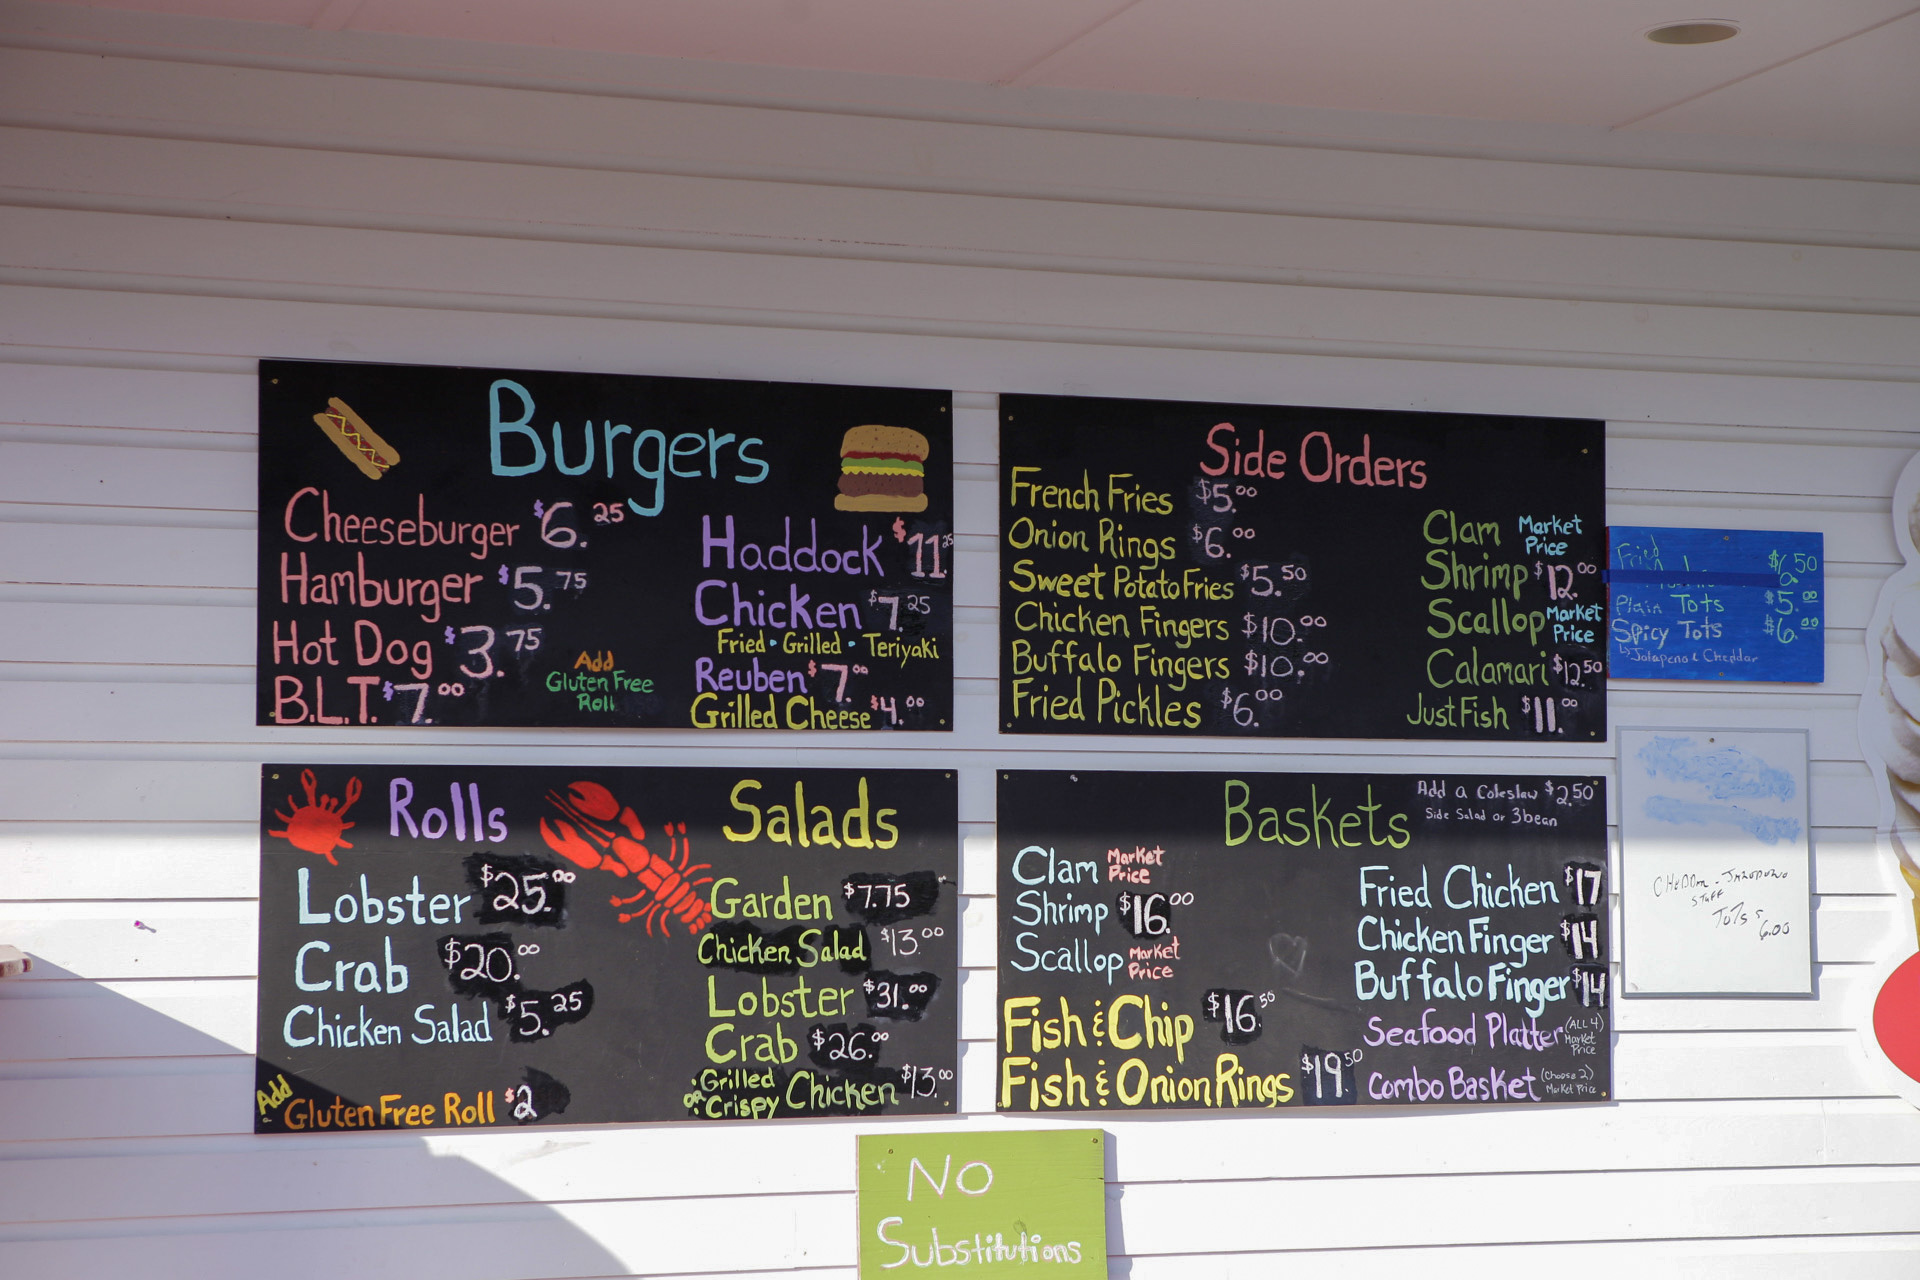 Burgers
Cheeseburger $6.25
Hamburger $5.75
Hot Dog $3.75
B.L.T. $7.00
Add
Gluten Free
Roll
Haddock $11.25
Chicken $7.25
Fried • Grilled • Teriyaki
Reuben $7.00
Grilled Cheese $4.00
Side Orders
French Fries $5.00
Onion Rings $6.00
Sweet Potato Fries $5.50
Chicken Fingers $10.00
Buffalo Fingers $10.00
Fried Pickles $6.00
Clam Market Price
Shrimp $12.00
Scallop Market Price
Calamari $12.50
Just Fish $11.00
Fried $6.50
Plain Tots $5.00
Spicy Tots $6.00
Jalapeno & Cheddar
Rolls
Lobster $25.00
Crab $20.00
Chicken Salad $5.25
Add
Gluten Free Roll $2
Salads
Garden $7.75
Chicken Salad $13.00
Lobster $31.00
Crab $26.00
Grilled or Crispy Chicken $13.00
Baskets
Add a Coleslaw $2.50
Side Salad or 3bean
Clam Market Price
Shrimp $16.00
Scallop Market Price
Fish & Chip $16.50
Fish & Onion Rings $19.50
Fried Chicken $17
Chicken Finger $14
Buffalo Finger $14
Seafood Platter (ALL 4) Market Price
Combo Basket (Choose 2) Market Price
STUFF
TOTS $6.00
No
Substitutions